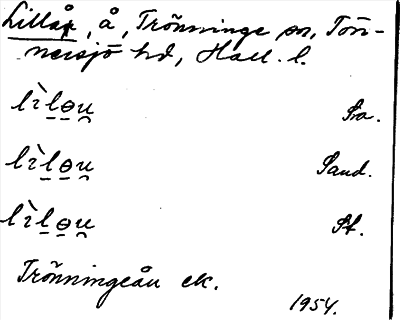 Lillå, å, Trönninge sn, Tön-
nersjö hd, Hall. l.
lìlɵu Sra.
lìlɵu Sand.
lìlɵu St.
Trönningeån ek.
1954.